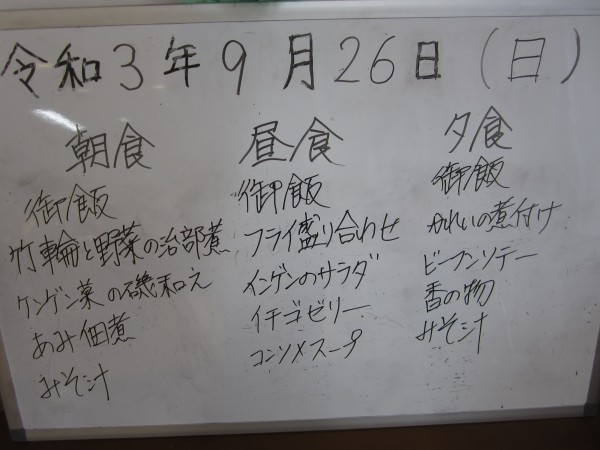 令和3年9月26日(日)
朝食
御飯
竹輪と野菜の治部煮
ケンゲン菜の磯和え
あみ佃煮
みそ汁
昼食
御飯
フライ盛り合わせ
インゲンのサラダ
イチゴゼリー
コンソメスープ
夕食
御飯
かれいの煮付け
ビーフンソテー
香の物
みそ汁